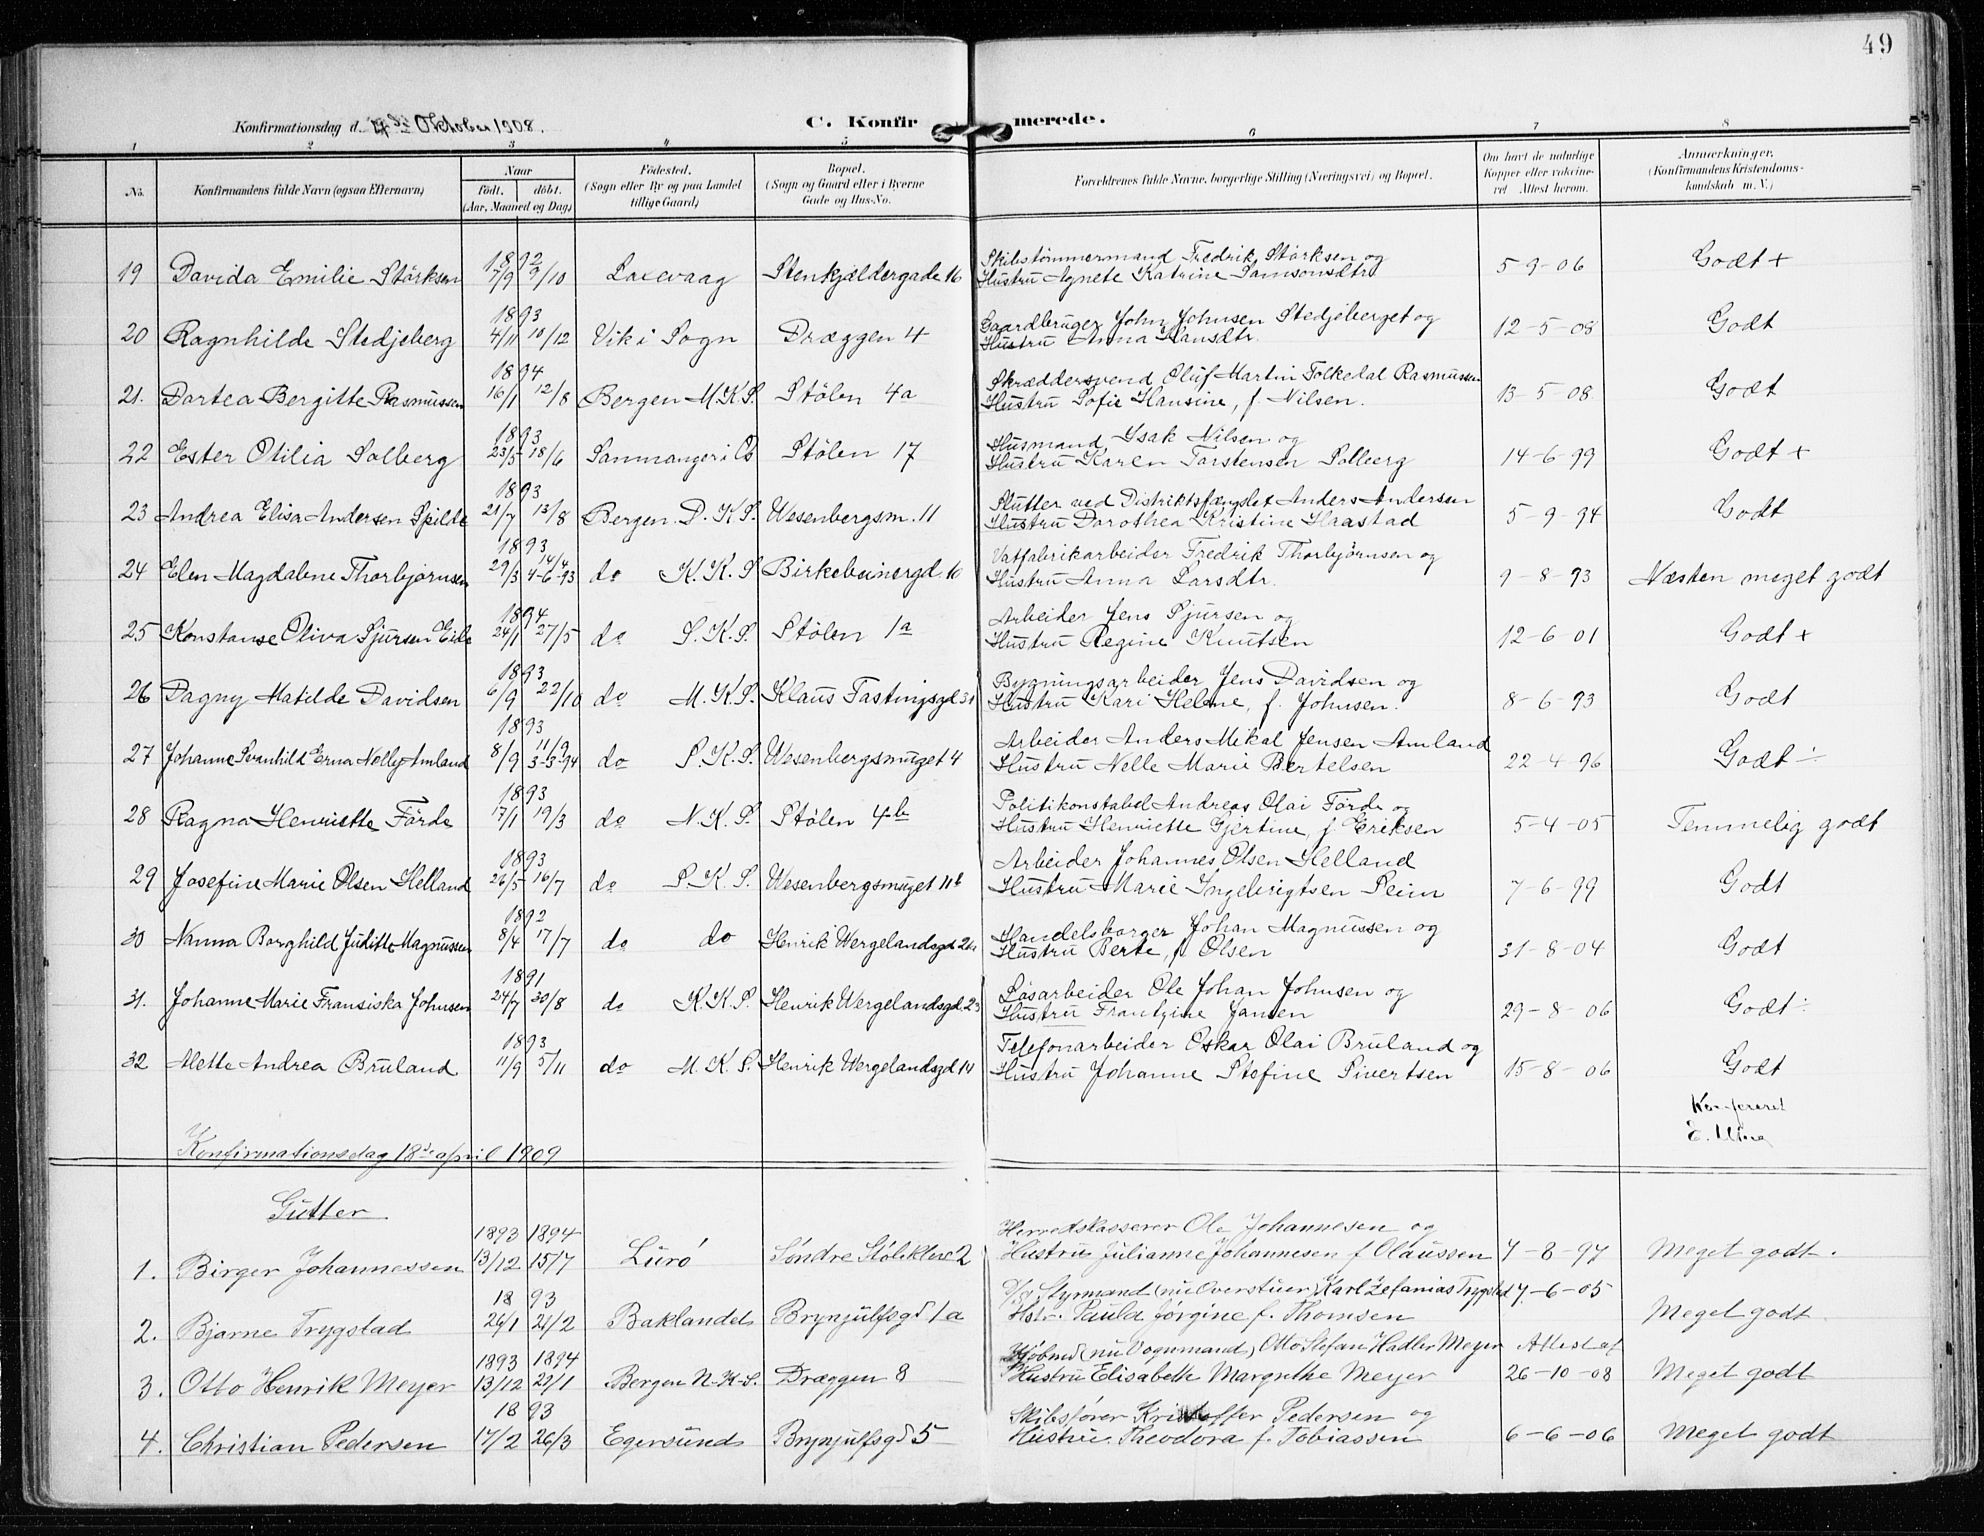 49
Konfirmationsdag d. 4de Oktober 1908.
C. Konfirmerede.
1 2 3 4 5 6 7 8
No. Konfirmandens fulde Navn (ogsaa Efternavn) Naar født, døbt. (Aar, Maaned og Dag) Fødested. (Sogn eller By og paa Landet tillige Gaard) Bopæl. (Sogn og Gaard eller i Byerne Gade og Hus-No. Forældrenes fulde Navne, borgerlige Stilling (Næringsvei) og Bopæl. Om havt de naturlige Kopper eller vaccineret Attest herom. Anmerkninger. (Konfirmandens Kristendomskundskab m. V.)
1892
19 Davida Emilie Størksen 7/9 9/10 Laxevaag Stenkjældergade 16 Skibstømmermand Fredrik Størksen og
Hustru Agnete Katrine Samsonsdtr 5-9-06 Godt +
1893
20 Ragnhilde Stedjeberg 4/11 10/12 Vik i Sogn Dræggen 4 Gaardbruger John Johnsen Stedjeberget og
Hustru Anna Hansdtr. 12-5-08 Godt
1894
21. Dortea Bergitte Rasmussen 16/1 12/8 Bergen M.K.S. Stølen 4a Skræddersvend Oluf Martin Folkedal Rasmussen
Hustru Sofie Hansine, f. Nilsen. 13-5-08 Godt
1893
22 Ester Otilia Solberg 23/5 18/6 Sammanger i Os Stølen 17 Husmand Isak Nilsen og
Hustru Karen Torstensen Solberg 14-6-99 Godt +
1893
23 Andrea Elisa Andersen Spilde 21/7 13/8 Bergen. D.K.S. Wesenbergsm. 11 Slutter ved Distriktsfængslet Anders Andersen
Hustru Dorothea Kristine Haastad 5-9-94 Godt
1893
24 Elen Magdalene Thorbjørnsen 29/3 14/4 4-6-93 do K.K.S Birkebeinergd 16 Vatfabrikarbeider Fredrik Thorbjørnsen og
Hustru Anna Larsdtr. 9-8-93 Næsten meget godt
1894
25 Konstanse Oliva Sjursen Eide 24/1 27/5 do S.K.S. Stølen 1a Arbeider Jens Sjursen og
Hustru Regine Knutsen 12-6-01 Godt +
1893
26 Dagny Matilde Davidsen 6/9 22/10 do M.K.S. Klaus Fastingsgd 31 Bygningsarbeider Jens Davidsen og
Hustru Kari Helene, f. Johnsen. 8-6-93 Godt
1893
27 Johanne Svanhild Erna Nelly Amland 8/9 11/9 3-3-94 do S.K.S. Wesenbergsmuget 4 Arbeider Anders Mikal Jensen Amland
Hustru Nelle Marie Bertelsen 22-4-96 Godt ÷
1893
28 Ragna Henriette Førde 17/1 19/3 do N.K.S. Stølen 4b Politikonstabel Andreas Olai Førde og
Hustru Henriette Gjertine, f Eriksen 5-4-05 Temmelig godt
1893
29 Josefine Marie Olsen Helland 26/5 16/7 do S.K.S. Wesenbergsmuget 11b Arbeider Johannes Olsen Helland
Hustru Marie Ingebrigtsen Seim 7-6-99 Godt
1892
30 Nanna Borghild Juditte Magnussen 8/4 17/7 do do Henrik Wergelandsgd Handelsborger Johan Magnussen og
Hustru Berte, f. Olsen 31-8-04 Godt
1891
31. Johanne Marie Fransiska Johnsen 24/7 30/8 do K.K.S. Henrik Wergelandsgd. 23 Løsarbeider Ole Johan Johnsen og
Hustru Frantzine Jansen 29-8-06 Godt ÷
1893
32 Mette Andrea Bruland 11/9 5/11 do M.K.S. Henrik Wergelandsgd 14 Telefonarbeider Oskar Olai Bruland og
Hustru Johanne Stefine Sivertsen 15-8-06 Godt
Konfereret
E.
Konfirmationsdag 18de april 1909
Gutter
1893 1894
1. Birger Johannessen 13/12 15/7 Lurö Søndre Stølekleve 2 Herredskasserer Ole Johannesen og
Hustru Julianne Johannesen f Olaussen 7-8-97 Meget godt.
1893
2. Bjarne Trygstad 26/1 21/2 Baklandet Brynjulfsgd 1a Styrmand (nu Overstuer) Karl Zefanias Trygstad
Hstr. Paula Jørgine f. Thomsen 17-6-05 Meget godt
1893 1894
3. Otto Henrik Meyer 13/12 22/1 Bergen N-K-S. Dræggen 8 Kjøbmd (nu Vognmand) Otto Stefan Hadler Meyer
Hustru Elisabeth Margrethe Meyer Attest af 26-10-08 Meget godt
1893
4. Christian Pedersen 17/2 26/3 Egersund Brynjulfsgd 5 Skibsfører Kristoffer Pedersen og
Hustru Theodora f. Tobiassen 6-6-06 Meget godt